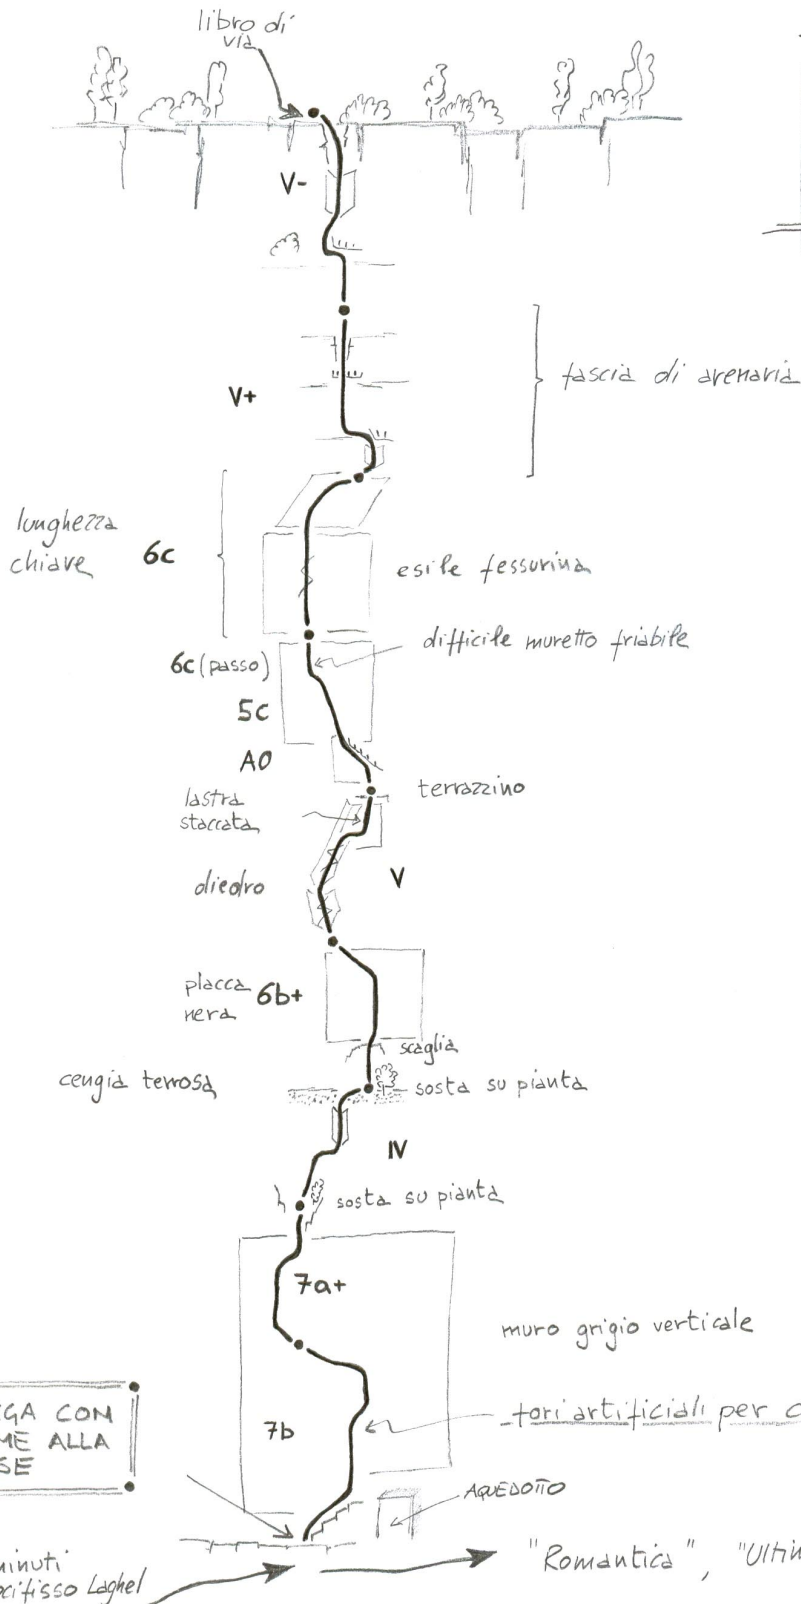 libro di
via
V-
V+
fascia di arenaria
lunghezza
chiave
6c
esile fessurina
difficile muretto friabile
6c (passo)
5c
A0
terrazzino
lastra
staccata
diedro
V
placca
nera
6b+
scaglia
cengia terrosa
sosta su pianta
IV
sosta su pianta
7a+
muro grigio verticale
fori artificiali per c
7b
EGA CON
ME ALLA
SE
AQUEDOTTO
minuti
ocifisso Laghel
"Romantica", "Ultim